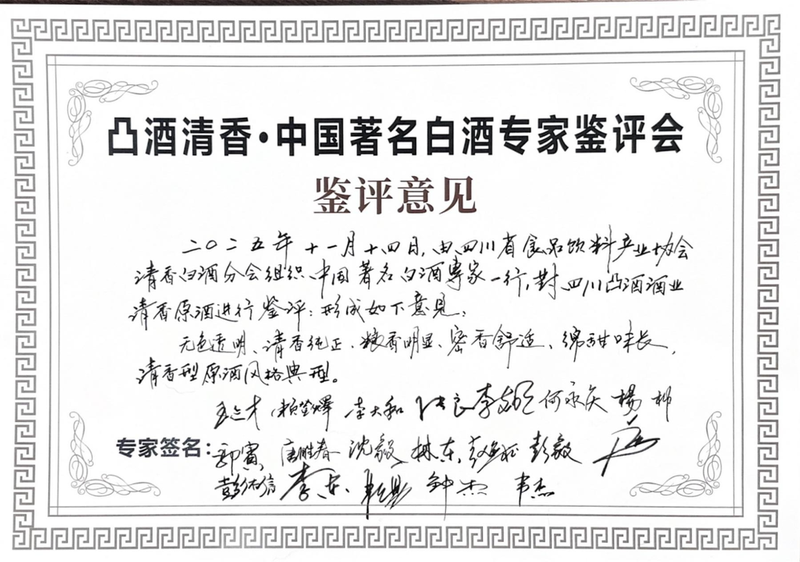 凸酒清香·中国著名白酒专家鉴评会
鉴评意见
二〇二五年十一月十四日,由四川省食品饮料产业协会
清香白酒分会组织、中国著名白酒专家一行,对四川凸酒酒业
清香原酒进行鉴评:形成如下意见:
无色透明、清香纯正、粮香明显、蜜香舒适、绵甜味长,
清香型原酒风格典型。
李大和 何永久 杨柳
专家签名:
郭寅 唐胜春 沈毅 林东 彭毅
李东 钟杰 韦杰